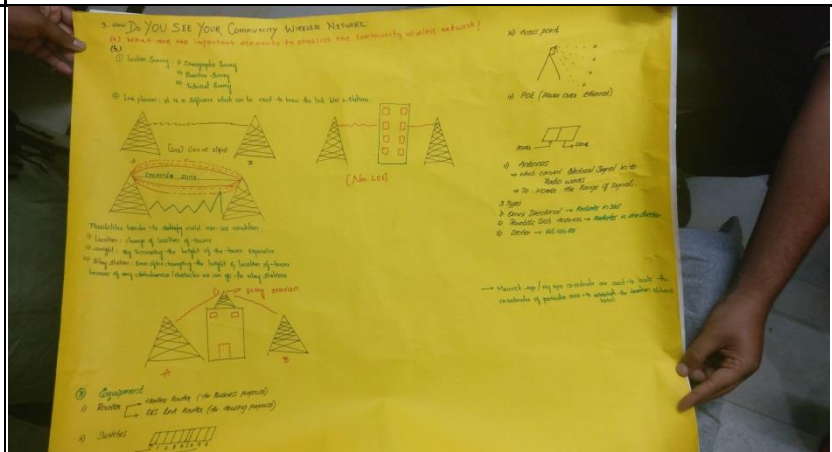 3. How DO YOU SEE YOUR COMMUNITY WIRELESS NETWORK
(a) What are the important elements to establish the community wireless network?
(b)
① Location Survey: i) Demographic Survey
ii) Baseline Survey
iii) Technical Survey
② Link planner: it is a Software which can be used to know the link b/w 2 stations
(LOS) line of sight
A
B
Fresnel zone
[Non LOS]
Possibilities to satisfy condition:
i) Location: change of location of tower
ii) Height: By increasing the height of the tower
iii) Relay station: Even after changing the height & location of tower
because of any obstacles we can go to relay stations
Relay station
A
B
③ Equipment
i) Router → Router (for Business purpose)
Link Router (for Housing purpose)
ii) Switches
iii) Access point
iv) POE (Power over ethernet)
v) Antennas
→ which convert Electrical Signal in to
Radio waves
→ To increase the Range of Signal.
3 Types
i) Omni Directional → Radiates in
ii) Parabolic Dish Antenna → Radiates in one direction
iii) Sector →
→ app / my gps co-ordinate are used to locate the
co-ordinates of particular area to the location